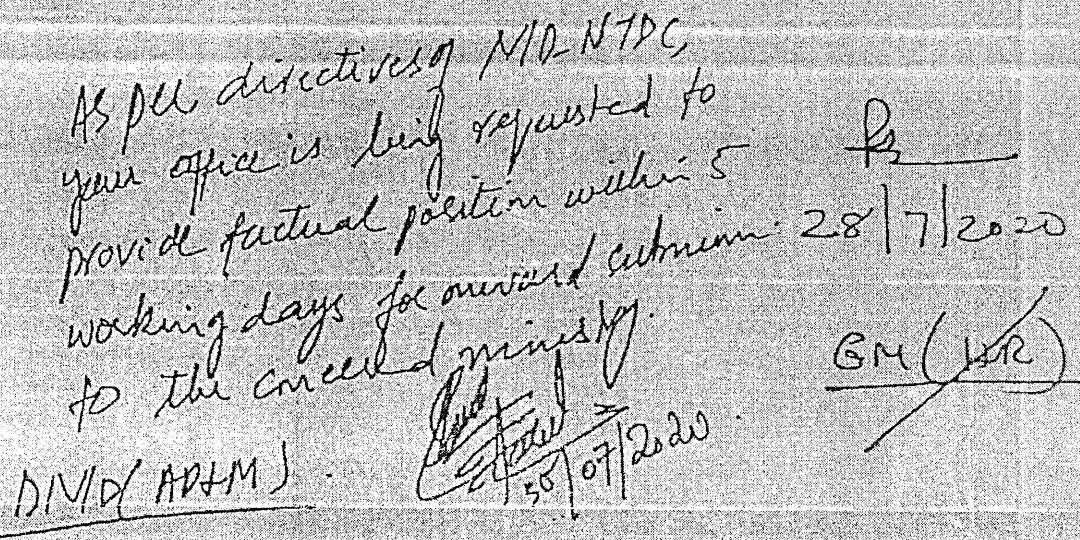 As per directives of M/D NTDC,
your office is being requested to
provide factual position within 5
working days for onward submission
to the concerned ministry.
30/07/2020
DMD (AD&M)
Ps
28/7/2020
GM (HR)